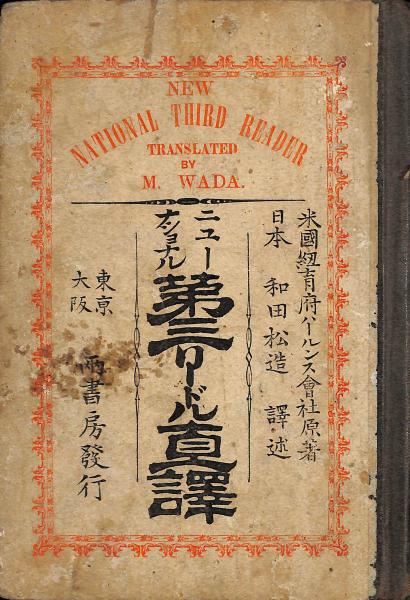 NEW
NATIONAL THIRD READER
TRANSLATED
BY
M. WADA.
米國紐育府バールンス會社原著
日本 和田松造 譯述
ニューナショナル
第三リードル直譯
東京
大阪
両書房發行